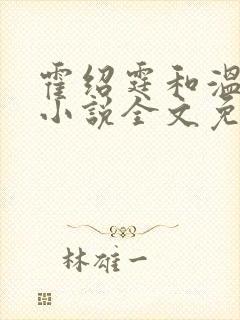 霍绍霆和温
小说全文免
林雄一